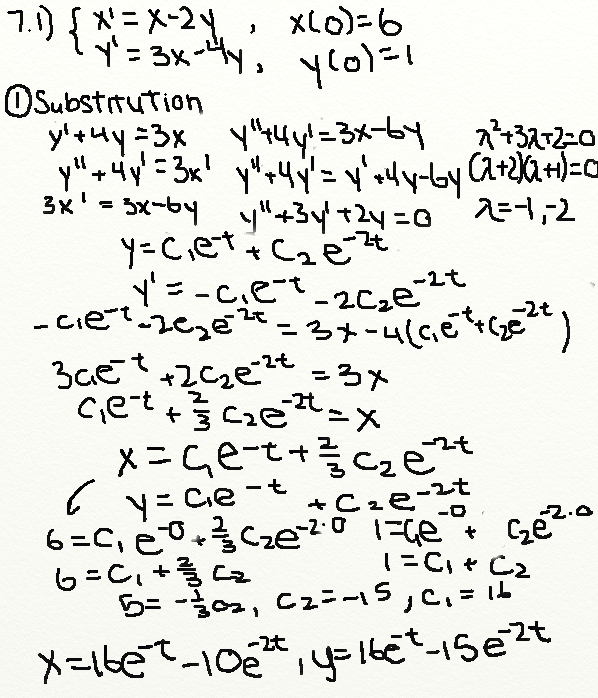 7.1) { x' = x-2y , x(0)=6
y' = 3x-4y, y(0)=1
① Substitution
y'+4y=3x y''+4y'=3x-6y λ²+3λ+2=0
y''+4y'=3x' y''+4y'=y'+4y-6y (λ+2)(λ+1)=0
3x' = 3x-6y y''+3y'+2y=0 λ=-1,-2
y=c₁e^-t + c₂e^-2t
y' = -c₁e^-t - 2c₂e^-2t
-c₁e^-t - 2c₂e^-2t = 3x-4(c₁e^-t+c₂e^-2t)
3c₁e^-t + 2c₂e^-2t = 3x
c₁e^-t + 2/3 c₂e^-2t = x
x = c₁e^-t + 2/3 c₂e^-2t
y = c₁e^-t + c₂e^-2t
6=c₁e^-0 + 2/3 c₂e^-2·0 1=c₁e^-0 + c₂e^-2·0
6=c₁+2/3 c₂ 1=c₁+c₂
5= -1/3 c₂, c₂=-15, c₁=16
x=16e^-t-10e^-2t, y=16e^-t-15e^-2t